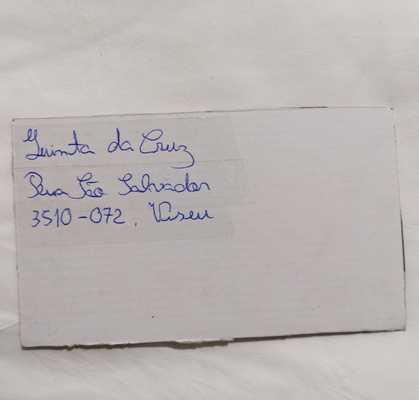 Quinta da Cruz
Rua São Salvador
3510-072, Viseu